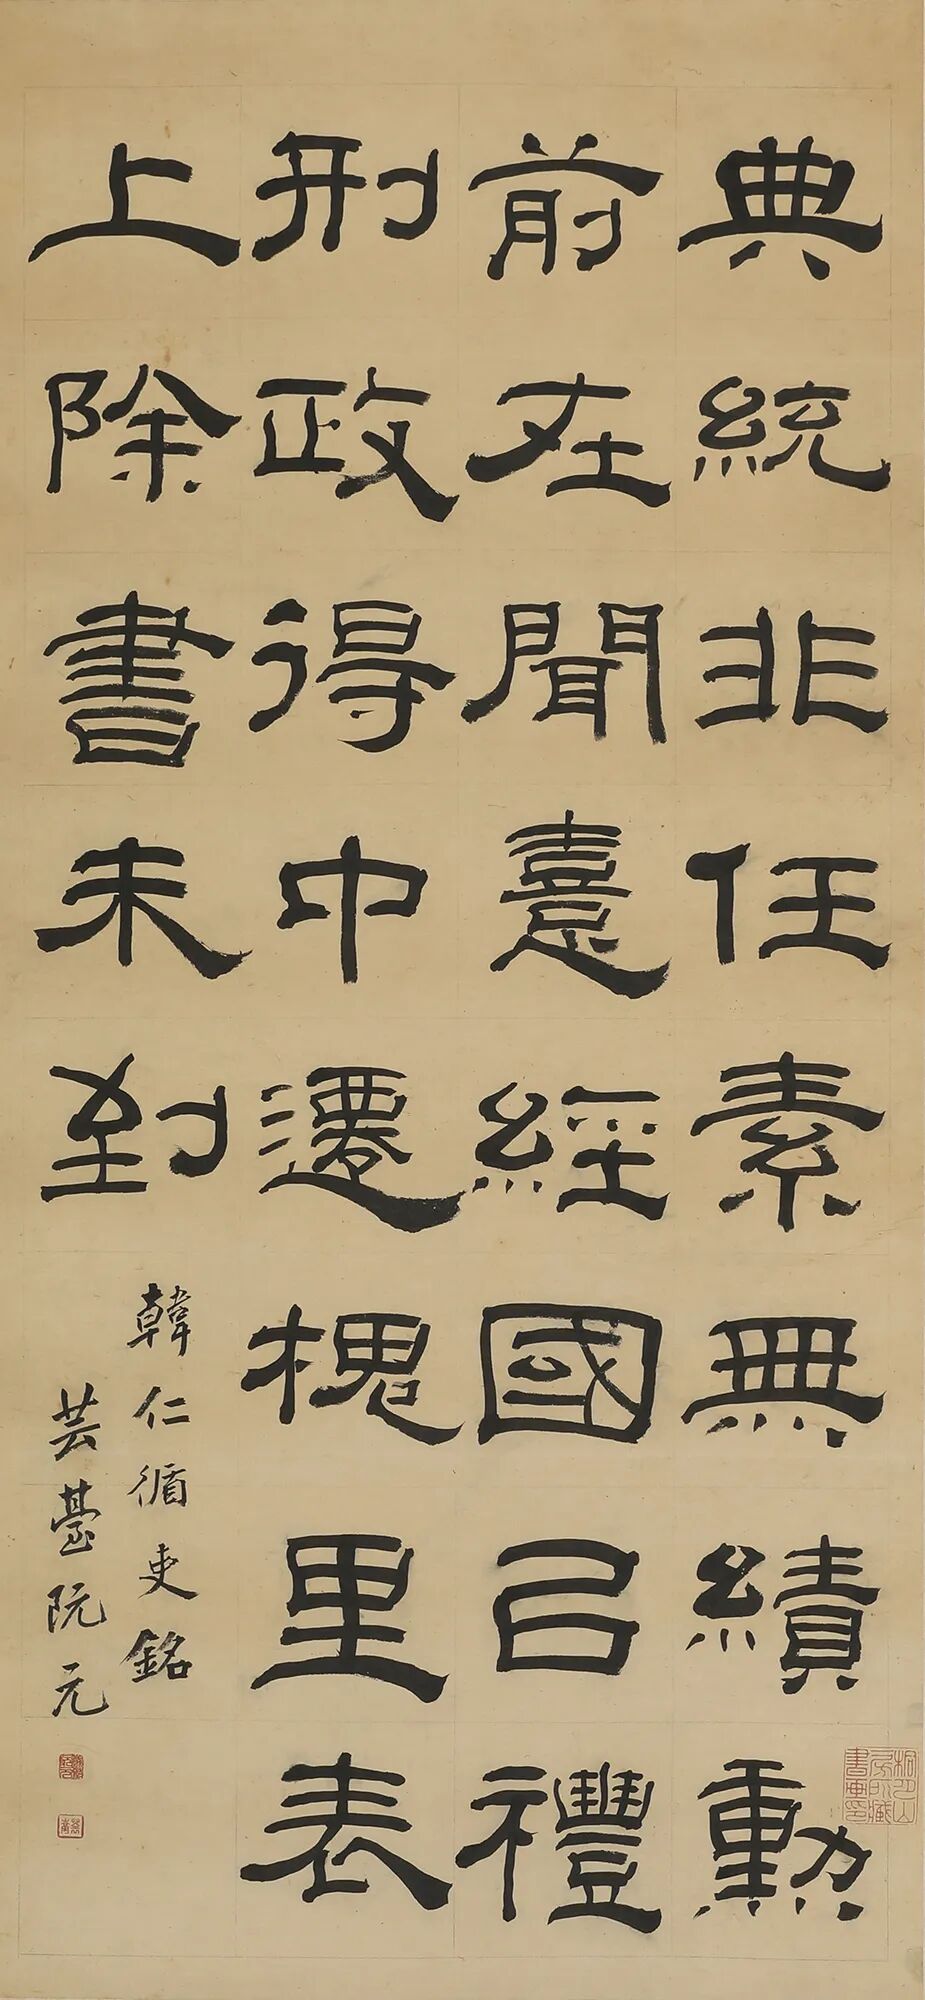 典統非任素無績勲
前在聞憙經國㠯禮
刑政得中遷槐里表
上除書未到
韓仁循吏銘
芸臺阮元